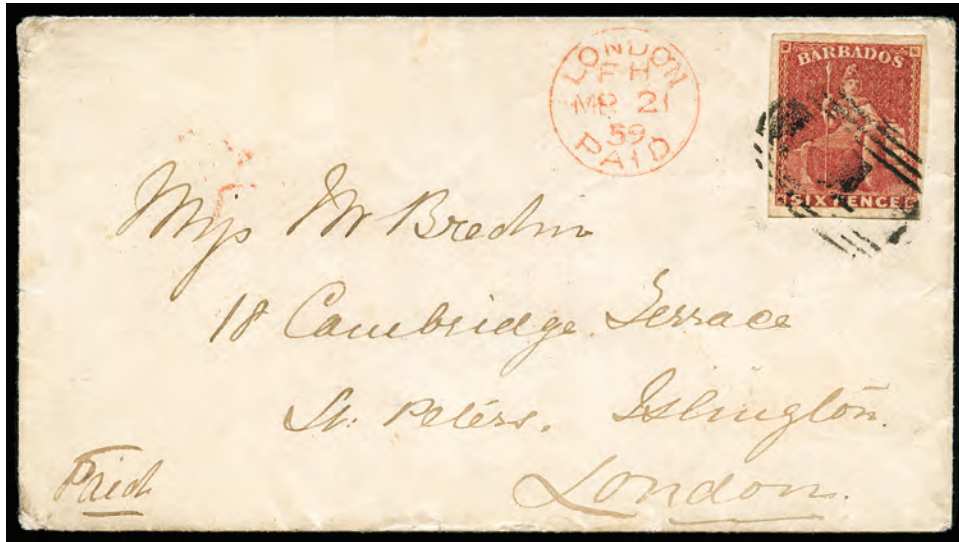 LONDON
FH
MR 21
59
PAID
BARBADOS
SIXPENCE
Miss M Bredin
18 Cambridge Terrace
St. Peters. Islington.
London.
Paid